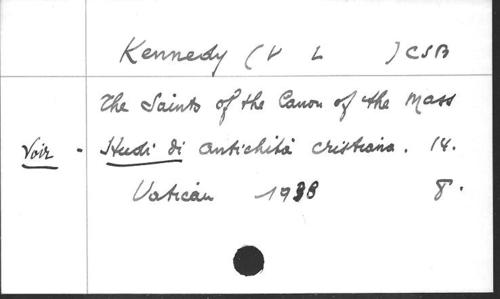 Kennedy (V L ) CSB
The Saints of the Canon of the Mass
Voir - Studi di antichità cristiana. 14.
Vatican 1938 8.